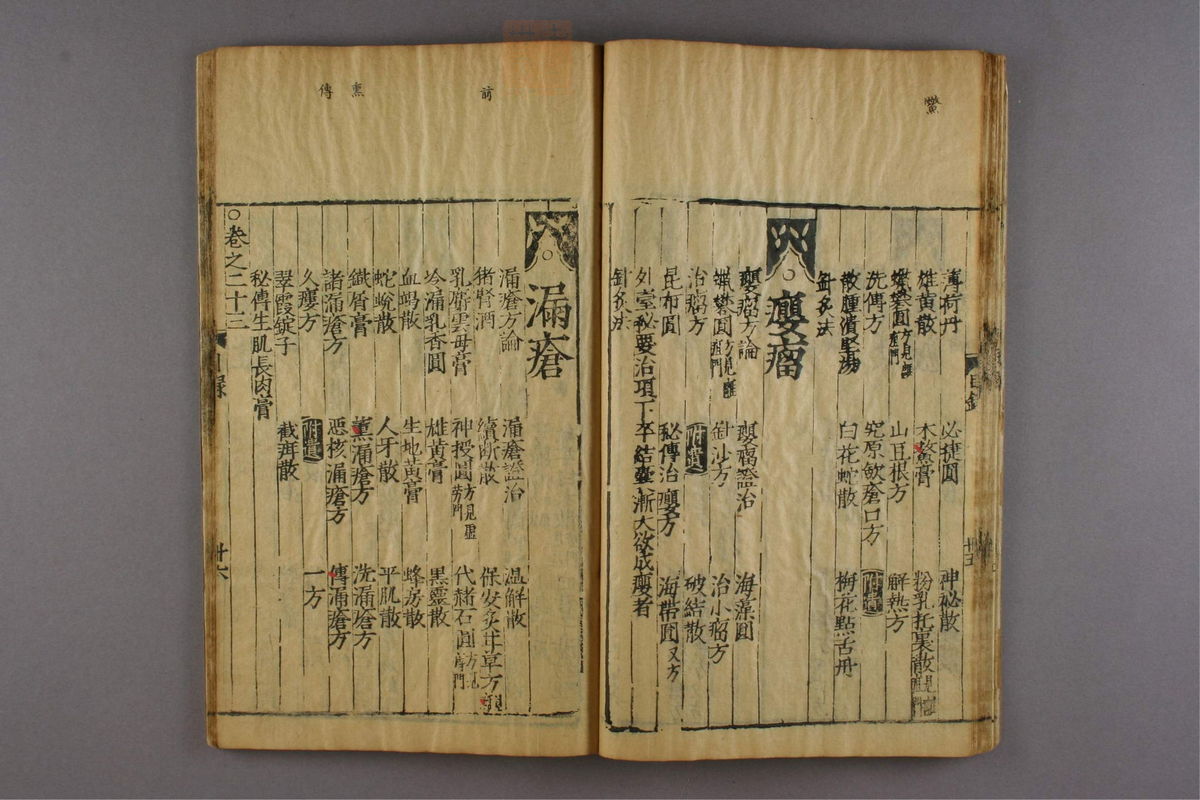 鱉
薄荷丹 必捷圓 神祕散
雄黃散 木鱉膏 粉乳托裏散
蠟礬圓 山豆根方 解熱方
洗傅方 究原歛瘡口方 附遺
散腫潰堅湯 白花蛇散 梅花點舌丹
針灸法
癭瘤
癭瘤方論 癭瘤證治 海藻圓
蠟礬圓 針沙方 治小瘤方
治瘤方 附遺 破結散
昆布圓 秘傳治癭方 海帶圓又方
外臺秘要治項下卒結囊漸大欲成癭者
針灸法
目錄
十五
前
熏
傳
漏瘡
漏瘡方論 漏瘡證治 溫解散
猪腎酒 續斷散 保安炙甘草方
乳香雲母膏 神授圓方見勞門 代赭石圓
冷漏乳香圓 雄黃膏 黑靈散
血竭散 生地黃膏 蜂房散
蛇蛻散 人牙散 平肌散
鐵屑膏 薰漏瘡方 洗漏瘡方
諸漏瘡方 惡核漏瘡方 傅漏瘡方
久瘻方 附遺 一方
翠霞錠子 截疳散
秘傳生肌長肉膏
○卷之二十三
目錄
廿六